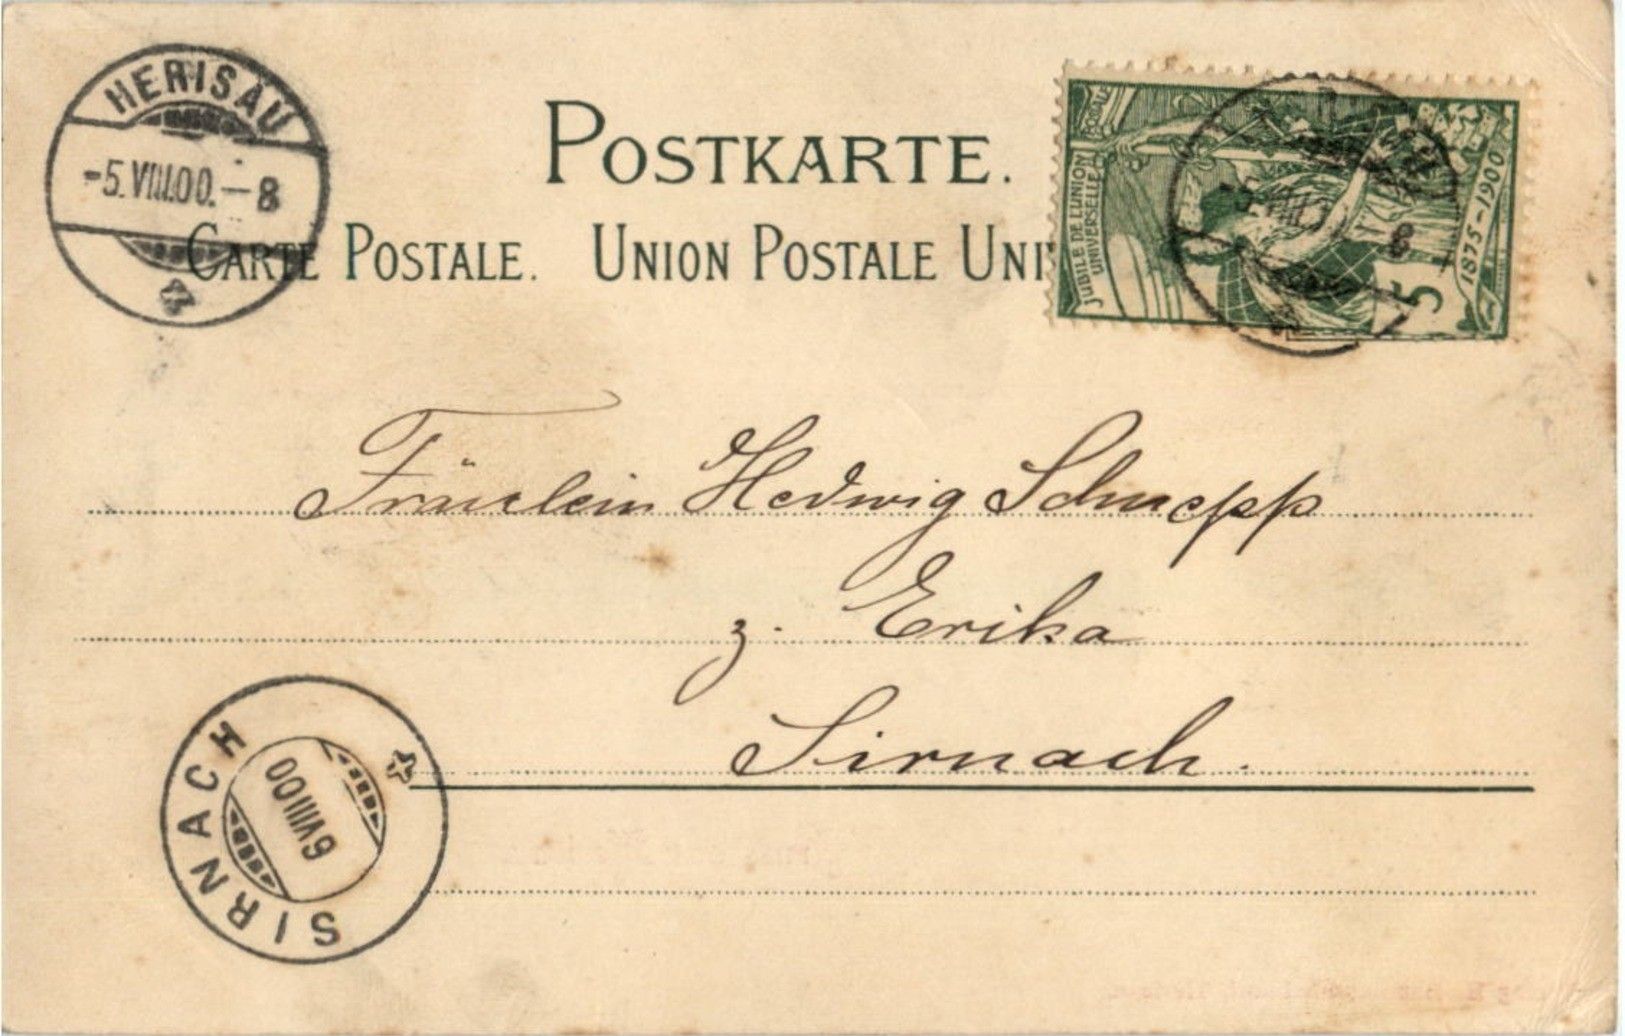 HERISAU
-5.VIII.00.-8
POSTKARTE.
CARTE POSTALE. UNION POSTALE UNI
JUBILÉ DE L'UNION
POSTALE
UNIVERSELLE
1875-1900
5
8
Fräulein Hedwig Schnepp
z. Erika
Sirnach.
SIRNACH
6VIII00